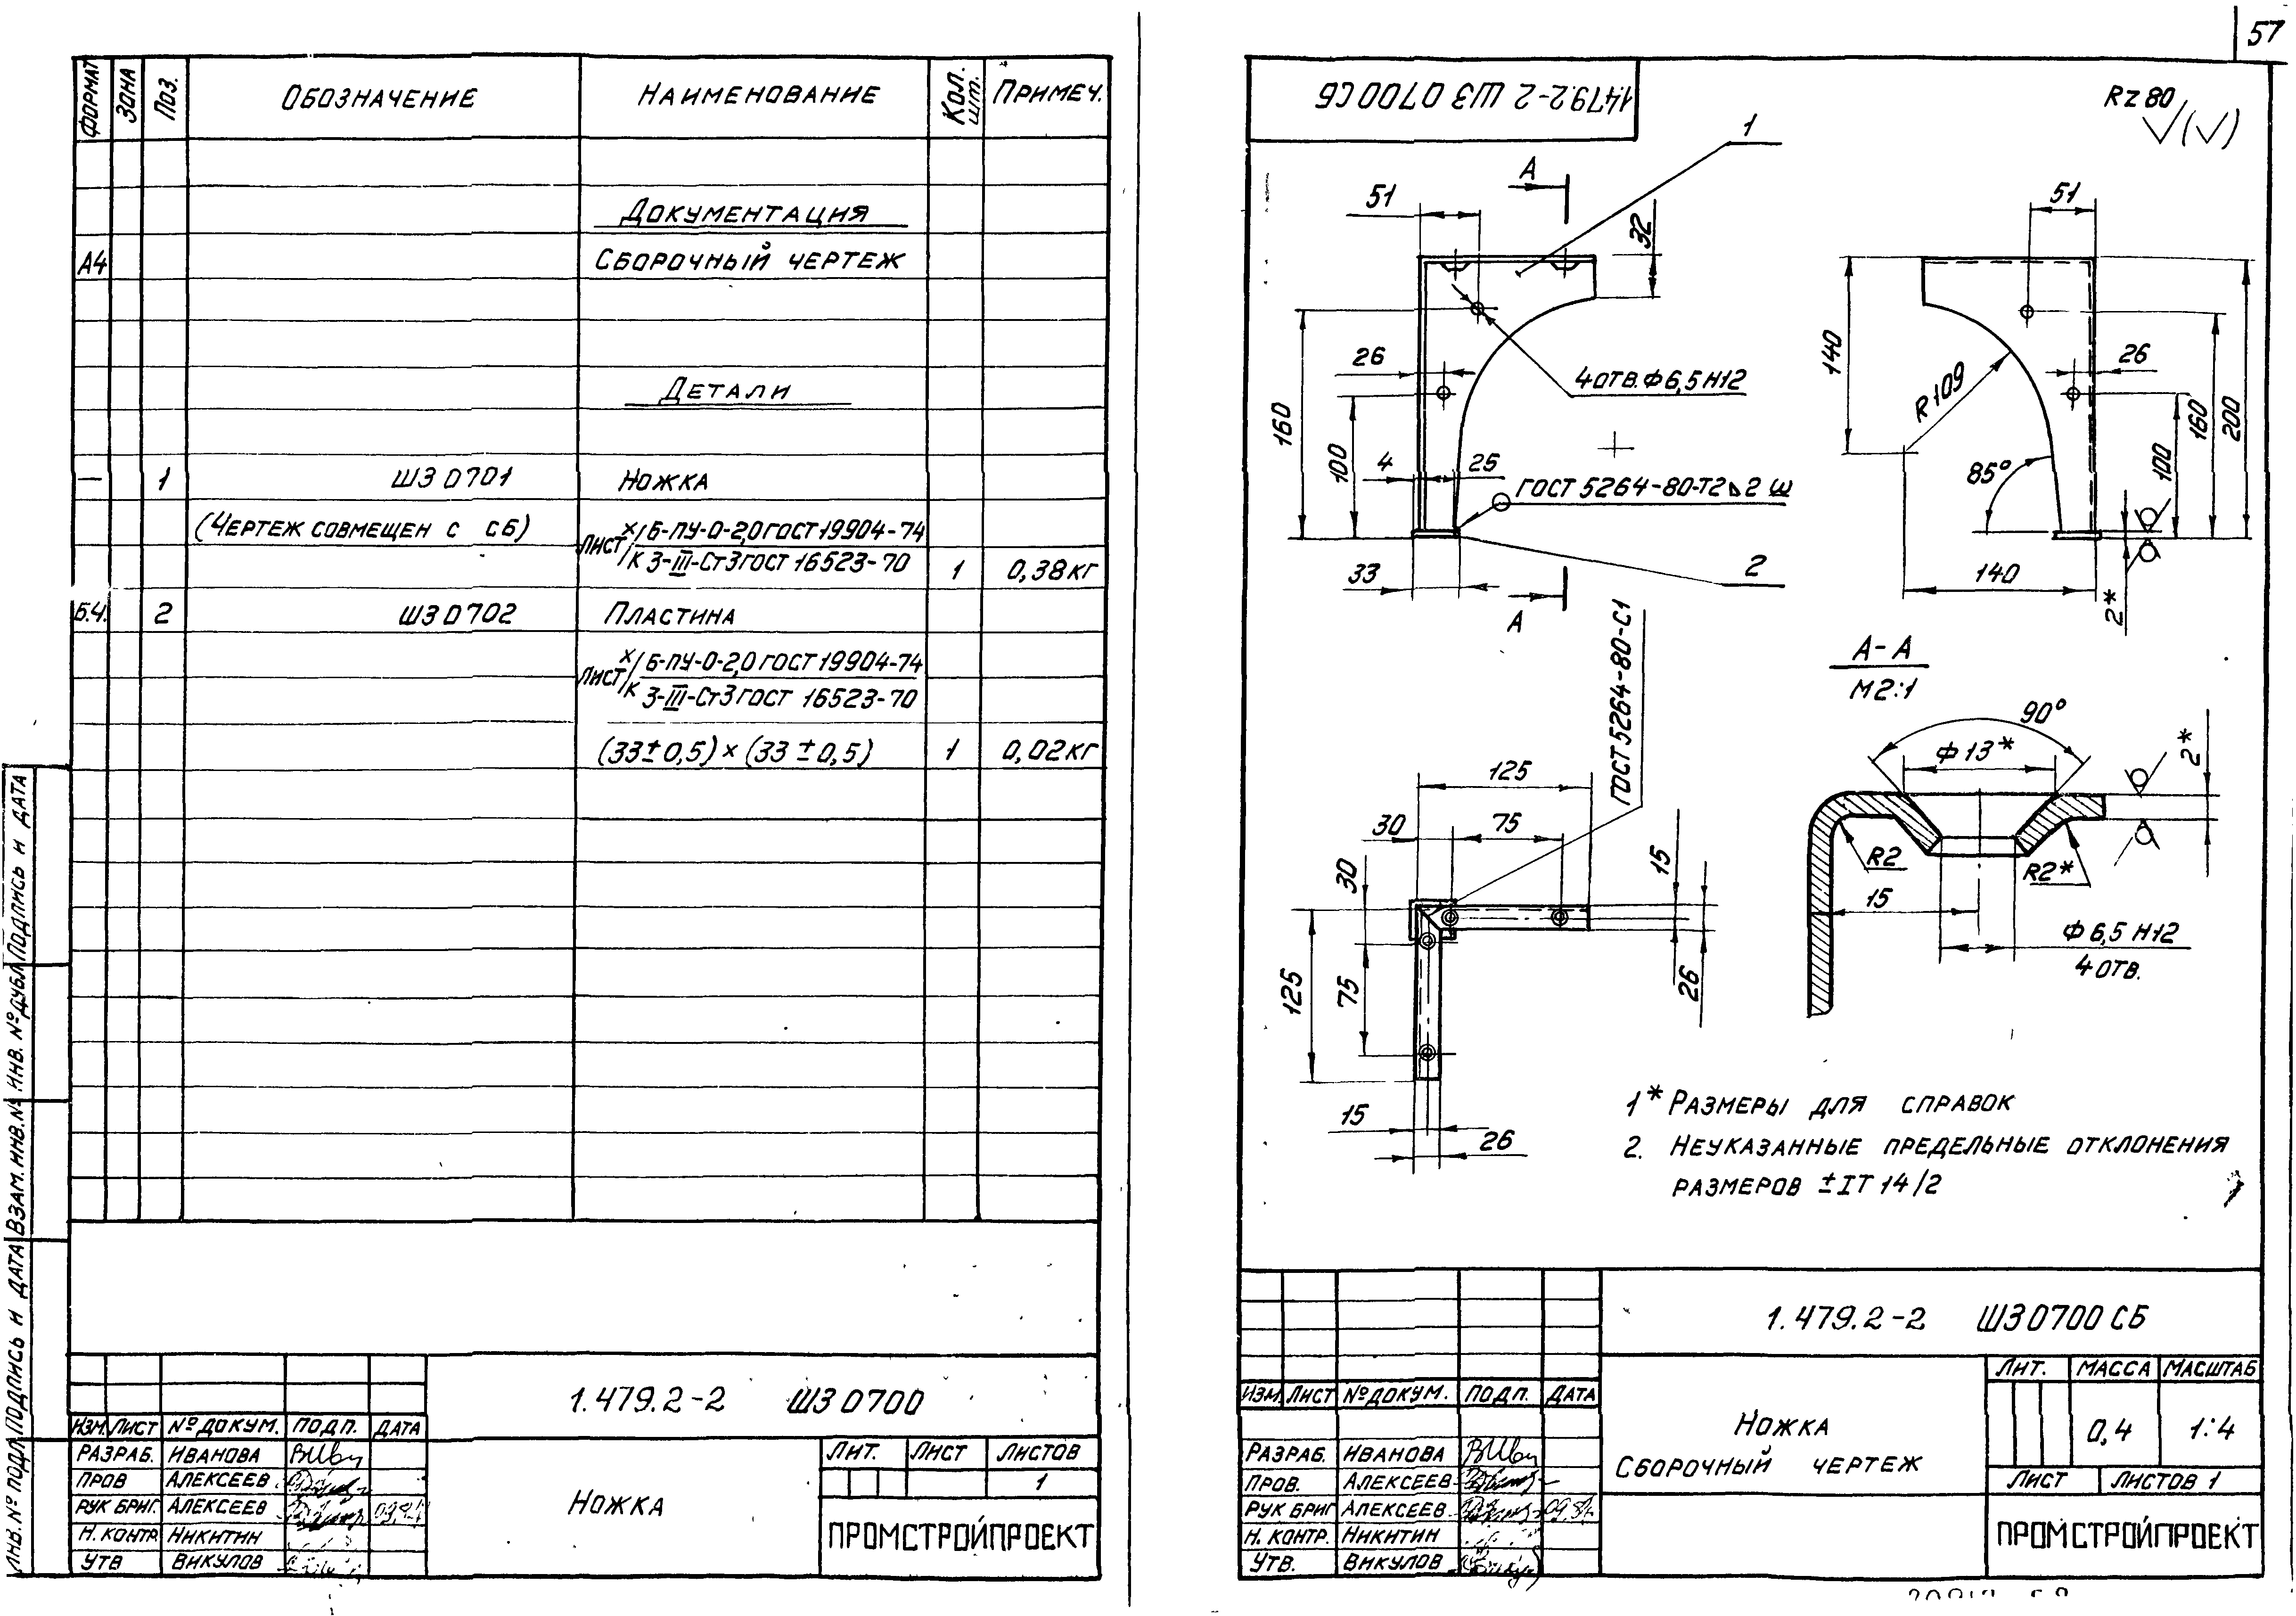 57
ФОРМАТ ЗОНА ПОЗ. ОБОЗНАЧЕНИЕ НАИМЕНОВАНИЕ КОЛ. ШТ. ПРИМЕЧ.
ДОКУМЕНТАЦИЯ
А4 СБОРОЧНЫЙ ЧЕРТЕЖ
ДЕТАЛИ
— 1 ШЗ 0701 НОЖКА
(ЧЕРТЕЖ СОВМЕЩЕН С СБ) ЛИСТ Х/К Б-ПУ-О-2,0 ГОСТ 19904-74
3-III-Ст3 ГОСТ 16523-70 1 0,38 КГ
Б.Ч. 2 ШЗ 0702 ПЛАСТИНА
ЛИСТ Х/К Б-ПУ-О-2,0 ГОСТ 19904-74
3-III-Ст3 ГОСТ 16523-70
(33±0,5)×(33±0,5) 1 0,02 КГ
ИНВ. № ПОДЛ ПОДПИСЬ И ДАТА ВЗАМ. ИНВ. № ИНВ. № ДУБЛ ПОДПИСЬ И ДАТА
1.479.2-2 ШЗ 0700
ИЗМ. ЛИСТ № ДОКУМ. ПОДП. ДАТА
РАЗРАБ. ИВАНОВА
ПРОВ АЛЕКСЕЕВ
РУК БРИГ АЛЕКСЕЕВ
Н. КОНТР НИКИТИН
УТВ ВИКУЛОВ
НОЖКА
ЛИТ. ЛИСТ ЛИСТОВ
1
ПРОМСТРОЙПРОЕКТ
1.479.2-2 ШЗ 0700 СБ
RZ 80
√(√)
1
А
51
32
160
26
100
4
25
4 ОТВ. Ф 6,5 Н12
ГОСТ 5264-80-Т2 ⊿ 2 Ш
2
33
А
51
140
R109
85°
26
100
160
200
140
2*
А-А
М2:1
90°
Ф 13*
2*
R2
R2*
15
Ф 6,5 Н12
4 ОТВ.
ГОСТ 5264-80-С1
125
30
75
30
15
26
125
75
15
26
1* РАЗМЕРЫ ДЛЯ СПРАВОК
2. НЕУКАЗАННЫЕ ПРЕДЕЛЬНЫЕ ОТКЛОНЕНИЯ
РАЗМЕРОВ ±IT 14/2
1.479.2-2 ШЗ 0700 СБ
ИЗМ. ЛИСТ № ДОКУМ. ПОДП. ДАТА
РАЗРАБ. ИВАНОВА
ПРОВ. АЛЕКСЕЕВ
РУК БРИГ АЛЕКСЕЕВ
Н. КОНТР. НИКИТИН
УТВ. ВИКУЛОВ
НОЖКА
СБОРОЧНЫЙ ЧЕРТЕЖ
ЛИТ. МАССА МАСШТАБ
0,4 1:4
ЛИСТ ЛИСТОВ 1
ПРОМСТРОЙПРОЕКТ